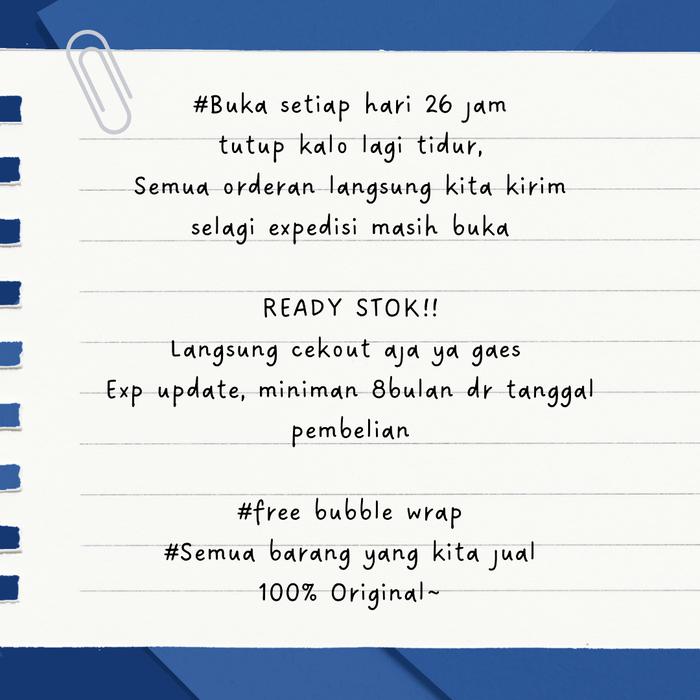 #Buka setiap hari 26 jam
tutup kalo lagi tidur,
Semua orderan langsung kita kirim
selagi expedisi masih buka
READY STOK!!
Langsung cekout aja ya gaes
Exp update, miniman 8bulan dr tanggal
pembelian
#free bubble wrap
#Semua barang yang kita jual
100% Original~